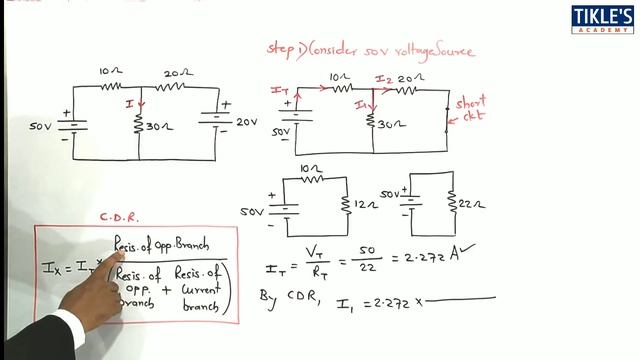 TIKLE'S
ACADEMY
Step 1) Consider 50V voltage Source
10Ω 20Ω
I
50V 30Ω 20V
IT 10Ω I2 20Ω
I1
50V 30Ω
short
ckt
10Ω
50V 12Ω
50V 22Ω
C.D.R.
IX = IT × Resis. of Opp. Branch
(Resis. of opp. branch + Resis. of Current branch)
IT = VT/RT = 50/22 = 2.272 A ✓
By CDR, I1 = 2.272 ×